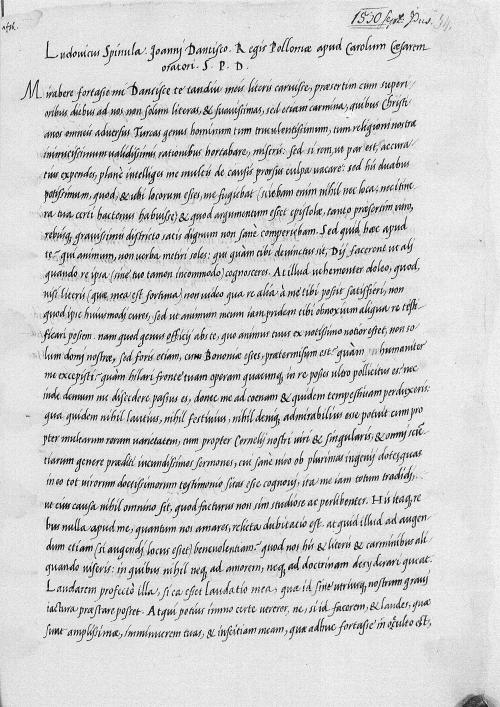 1530 Sept.
34.
Ludovicus Spinula Joanni Dantisco Regis Polloniae apud Carolum Caesarem
oratori. S. P. D.
Mirabere fortasse mi Dantisce te tandiu meis literis caruisse, praesertim cum superi-
oribus diebus ad nos non solum literas, & suavissimas, sed etiam carmina, quibus Christi-
anos omneis adversus Turcas genus hominum tum truculentissimum, tum religioni nostrae
inimicissimum validissimis rationibus hortabare, miseris: sed si rem, ut par est, accura-
tius expendes, plane intelliges me multis de causis prorsus culpa vacare: sed his duabus
potissimum, quod, & ubi locorum esses, me fugiebat (sciebam enim nihil nec loca, nec itine-
ra tua certi hactenus habuisse) & quod argumentum esset epistolae, tanto praesertim viro,
rebusq. gravissimis districto satis dignum non sane comperiebam. Sed quid haec apud
te qui animum, non verba metiri soles: cui quam tibi devinctus sit, Dij facerent ut ali-
quando re ipsa (sine tuo tamen incommodo) cognosceres. At illud vehementer doleo, quod,
nisi literis (quae mea est fortuna) non video qua re alia à me tibi possit satisfieri, non
quod ipse huiusmodi cures, sed ut animum meum iampridem tibi obnoxium aliqua re testi-
ficari possem. nam quod genus officij abs te, quo animus tuus ex notissimo notior esset, non so-
lum domj nostrae, sed foris etiam, cum Bononiae esses, praetermissum est? quàm humaniter
me excepisti? quàm hilari fronte tuam operam quacunq. in re posses ultro pollicitus es? nec
inde demum me discedere passus es, donec me ad coenam & quidem tempestivam perduxeris:
qua quidem nihil lautius, nihil festivius, nihil deniq. admirabilius esse potuit cum pro-
pter multarum rerum varietatem, tum propter Cornelij nostri viri & singularis, & omnj scien-
tiarum genere praediti iucundissimos sermones, cui sane viro ob plurimas ingenij dotes quas
in eo tot virorum doctissimorum testimonio sitas esse cognovi, ita me iam totum tradidj,
ut eius causa nihil omnino sit, quod facturus non sim studiose at perlibenter. His itaq. re-
bus nulla apud me, quantum nos amares, relicta dubitatio est. at quid illud ad augen-
dum etiam (si augendj locus esset) benevolentiam? quod nos his & literis & carminibus ali-
quando viseris: in quibus nihil neq. ad amorem, neq. ad doctrinam desyderari queat.
Laudarem profecto illa, si ea esset laudatio mea, quae id sine utriusq. nostrum gravi
iactura praestare posset. Atqui potius immo certe vererer, ne, si id facerem, & laudes, quae
sunt amplissimae, imminuerem tuas, & inscitiam meam, quae adhuc fortasse in occulto est,